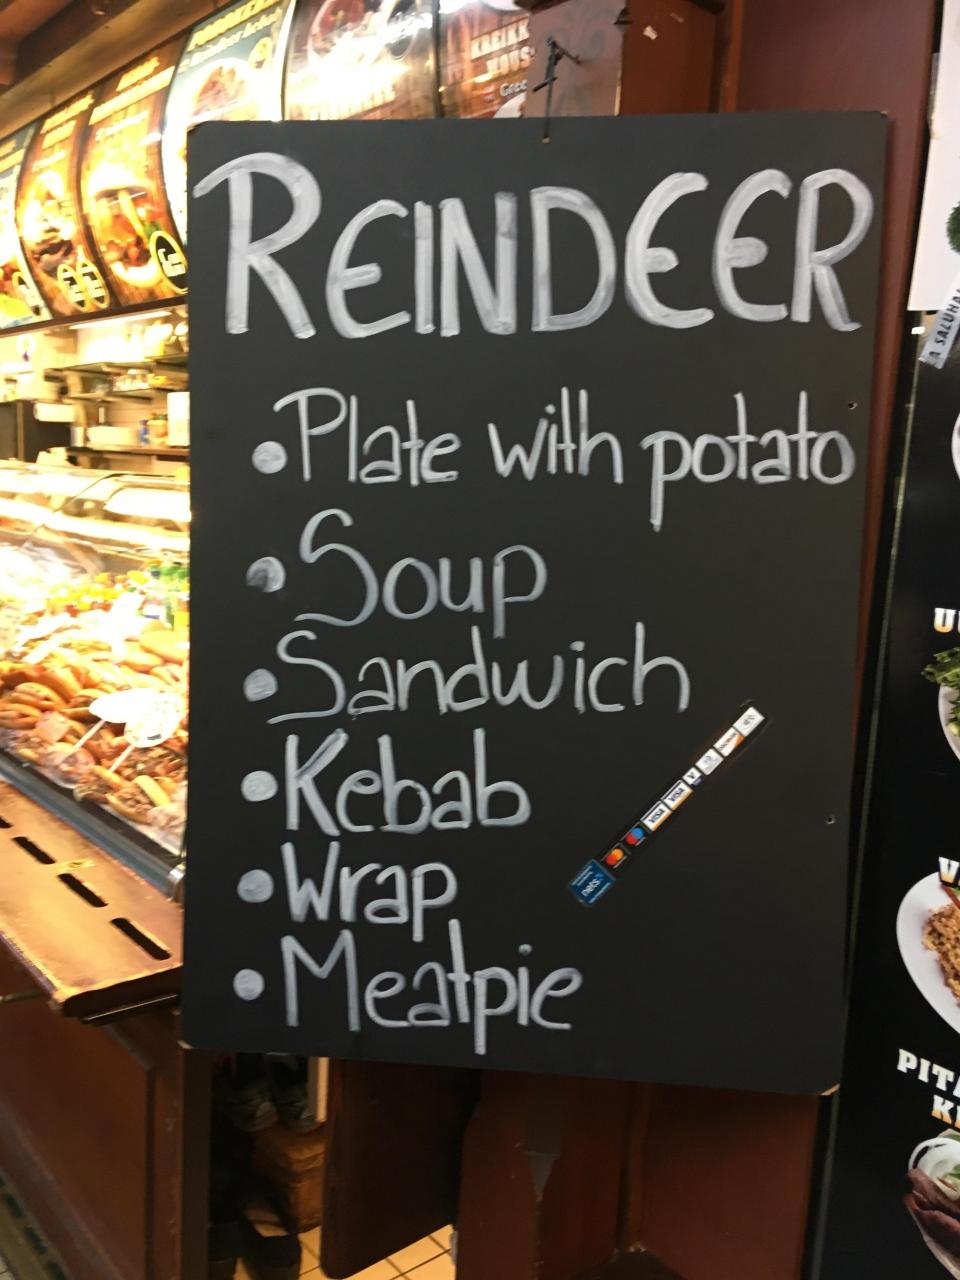 REINDEER
•Plate with potato
•Soup
•Sandwich
•Kebab
•Wrap
•Meatpie
nets
VISA
VISA
V
KREIKK
Gree
SALUHAL
PITA